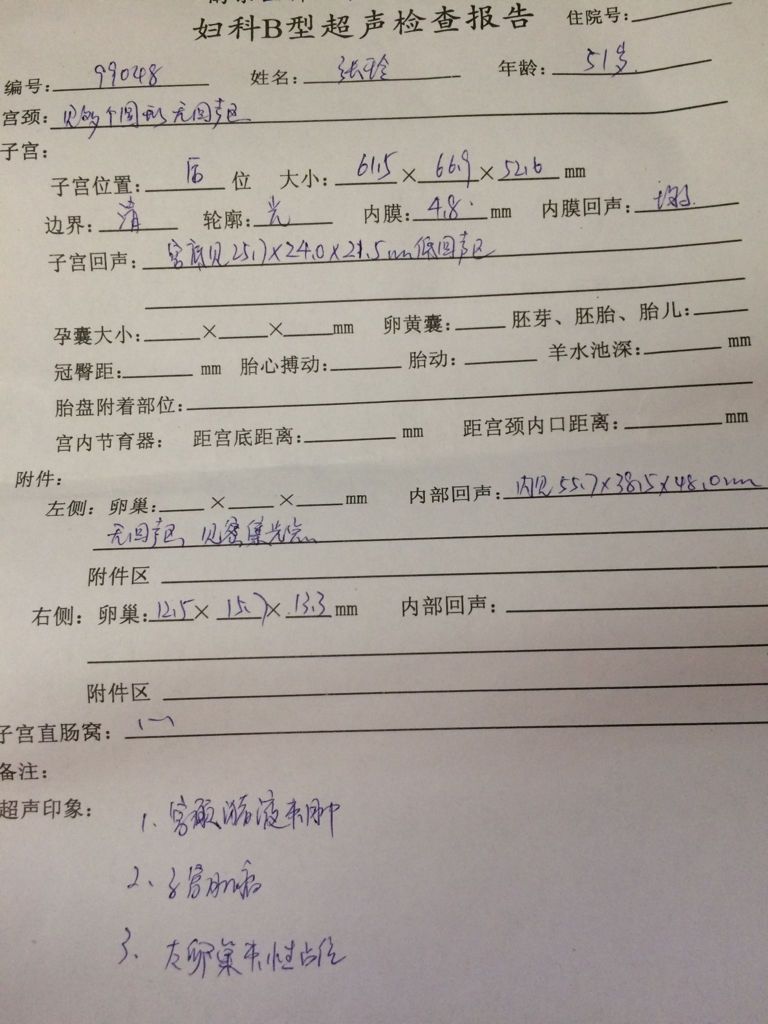 妇科B型超声检查报告 住院号:
编号: 99048 姓名: 张玲 年龄: 51岁
宫颈: 见多个圆形无回声区
子宫:
子宫位置: 后 位 大小: 61.5 × 66.9 × 52.6 mm
边界: 清 轮廓: 光 内膜: 4.8 mm 内膜回声: 均匀
子宫回声: 宫底见25.7×24.0×21.5mm低回声区
孕囊大小: × × mm 卵黄囊: 胚芽、胚胎、胎儿:
冠臀距: mm 胎心搏动: 胎动: 羊水池深: mm
胎盘附着部位:
宫内节育器: 距宫底距离: mm 距宫颈内口距离: mm
附件:
左侧: 卵巢: × × mm 内部回声: 内见55.7×38.5×48.0mm
无回声区, 见密集光点
附件区
右侧: 卵巢: 12.5 × 15.7 × 13.3 mm 内部回声:
附件区
子宫直肠窝: (一)
备注:
超声印象: 1、宫颈潴液囊肿
2、子宫肌瘤
3、左卵巢囊性占位